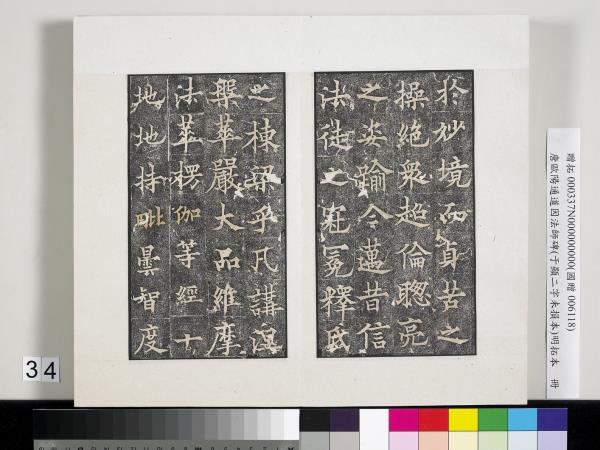 於妙境而貞苦之
操絕眾超倫聦亮
之姿踰今邁昔信
法徒之冠冕釋氏
之棟梁乎凡講涅
槃華嚴大品維摩
法華楞伽等經十
地地持毗曇智度
贈拓 000337N000000000(國贈 006118)
唐歐陽通道因法師碑(于顯二字未損本)明拓本 冊
34